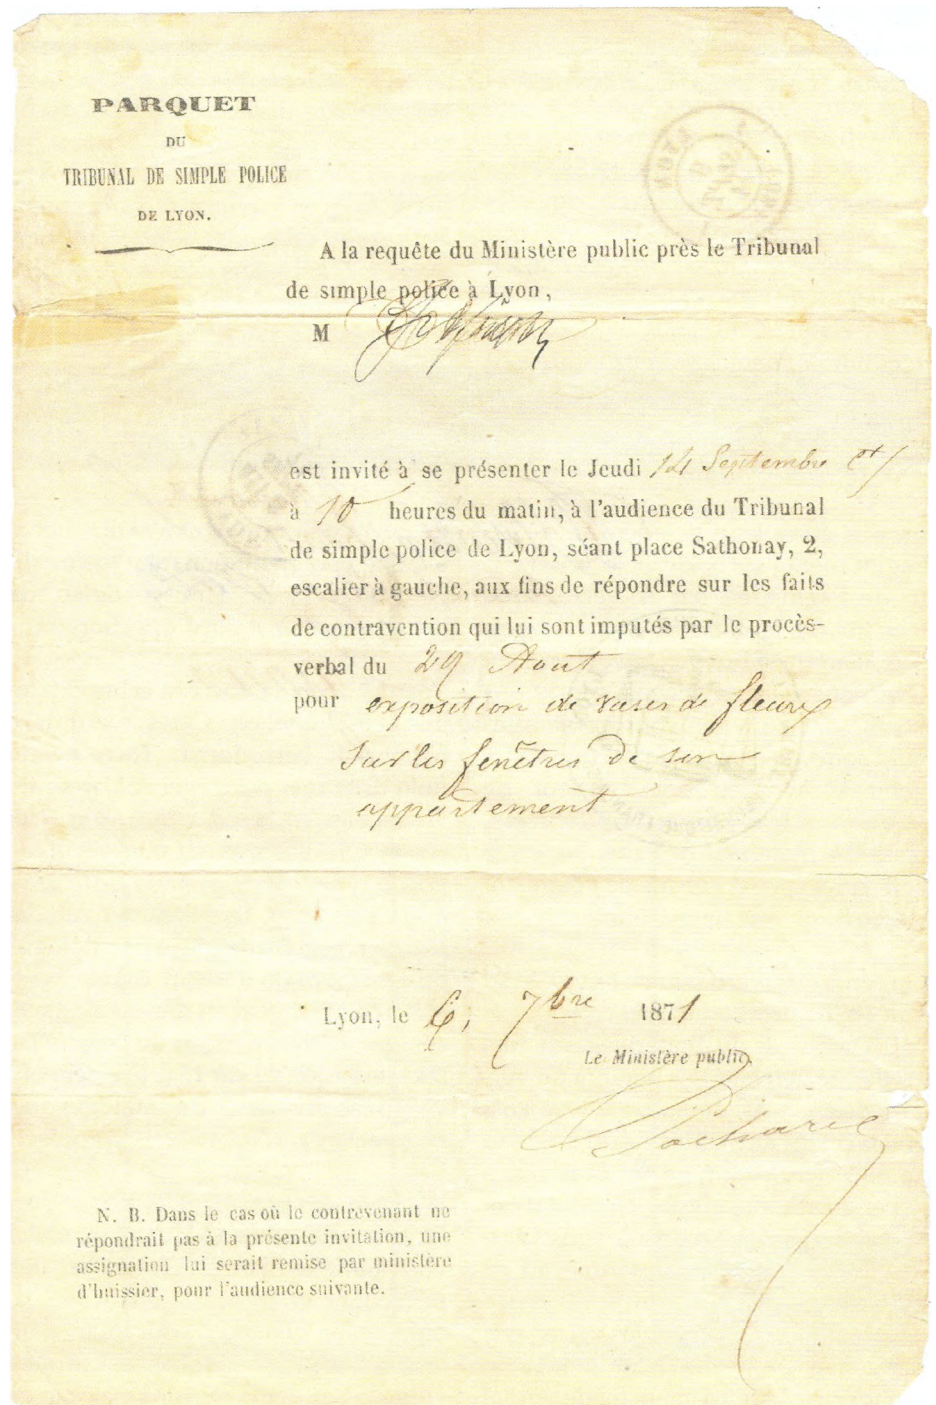 PARQUET
DU
TRIBUNAL DE SIMPLE POLICE
DE LYON.
A la requête du Ministère public près le Tribunal
de simple police à Lyon,
M
est invité à se présenter le Jeudi 14 Septembre
à 10 heures du matin, à l'audience du Tribunal
de simple police de Lyon, séant place Sathonay, 2,
escalier à gauche, aux fins de répondre sur les faits
de contravention qui lui sont imputés par le procès-
verbal du 29 Aout
pour exposition de vases de fleurs
sur les fenêtres de son
appartement
Lyon, le 6, 7bre 1871
Le Ministère public,
N. B. Dans le cas où le contrevenant ne
répondrait pas à la présente invitation, une
assignation lui serait remise par ministère
d'huissier, pour l'audience suivante.